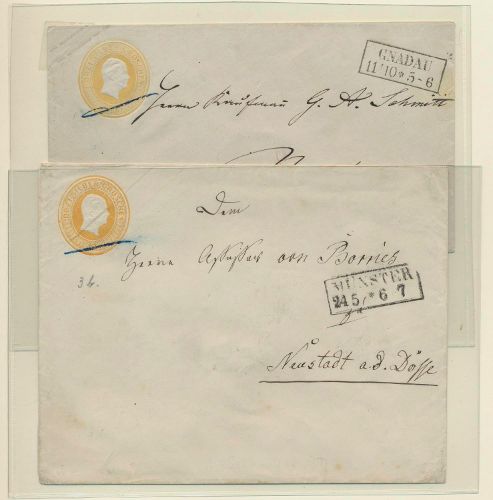 GNADAU
11/10 * 5-6
Herrn Kaufmann G. A. Schmitt
Dem
Herrn Assessor von Borries
MÜNSTER
24 5 * 6 7
3b.
Neustadt a.d. Dosse